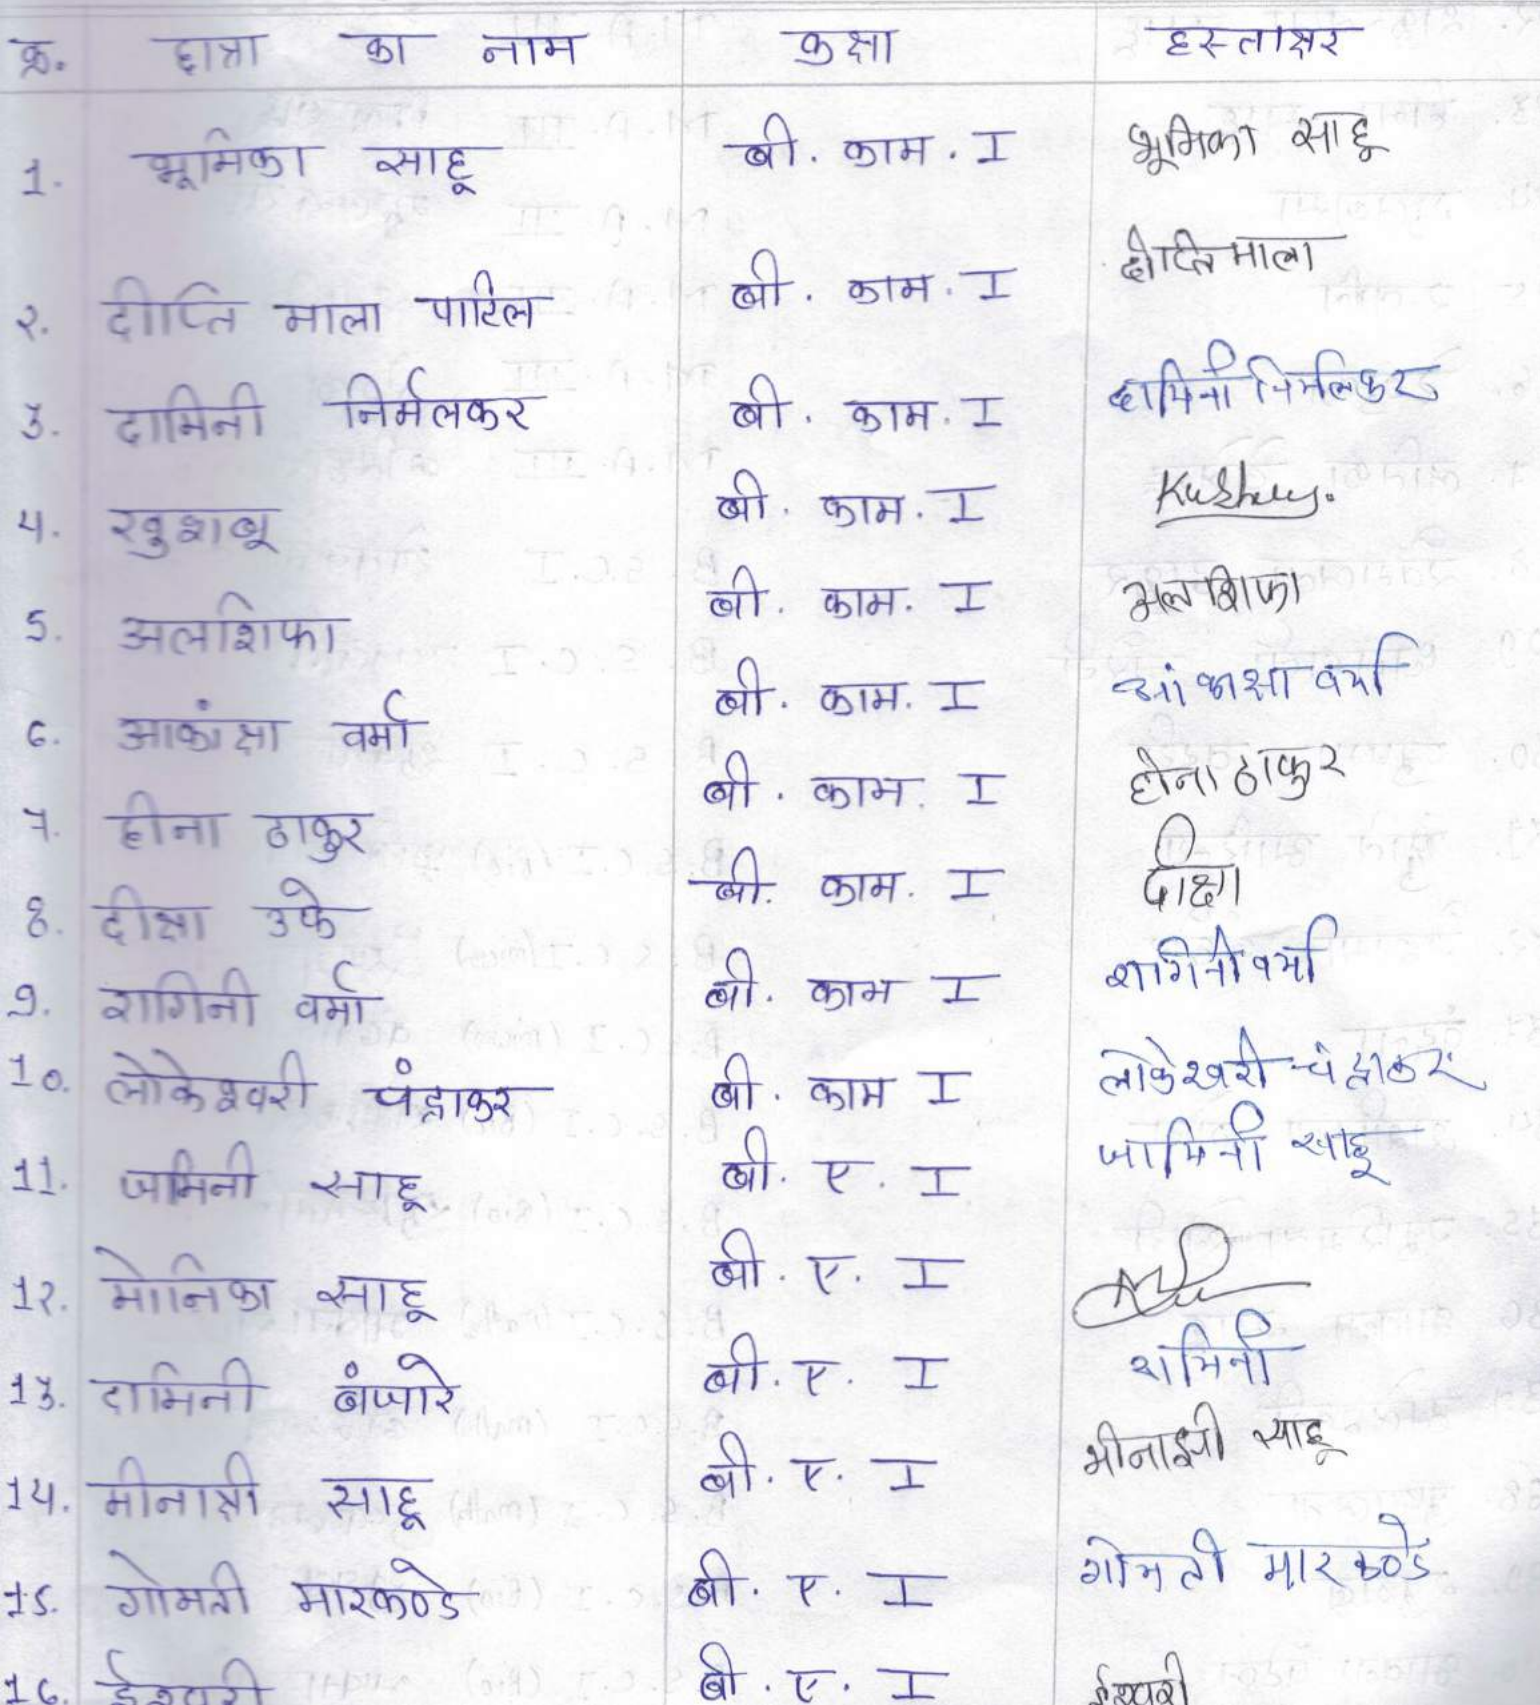 क्र. छात्रा का नाम कक्षा हस्ताक्षर
1. भूमिका साहू बी. काम. I भूमिका साहू
२. दीप्ति माला पाटिल बी. काम. I दीप्ति माला
3. दामिनी निर्मलकर बी. काम. I दामिनी निर्मलकर
4. खुशबू बी. काम. I
5. अलशिफा बी. काम. I अलशिफा
6. आकांक्षा वर्मा बी. काम. I आंकाक्षा वर्मा
7. हीना ठाकुर बी. काम. I हीना ठाकुर
8. दीक्षा उके बी. काम. I दीक्षा
9. रागिनी वर्मा बी. काम I रागिनी वर्मा
10. लोकेश्वरी चंद्राकर बी. काम I लोकेश्वरी चंद्राकर
11. जामिनी साहू बी. ए. I जामिनी साहू
1२. मोनिका साहू बी. ए. I
13. दामिनी बंजारे बी. ए. I दामिनी
14. मीनाक्षी साहू बी. ए. I मीनाक्षी साहू
15. गोमती मारकण्डे बी. ए. I गोमती मारकण्डे
16. ईश्वरी बी. ए. I ईश्वरी